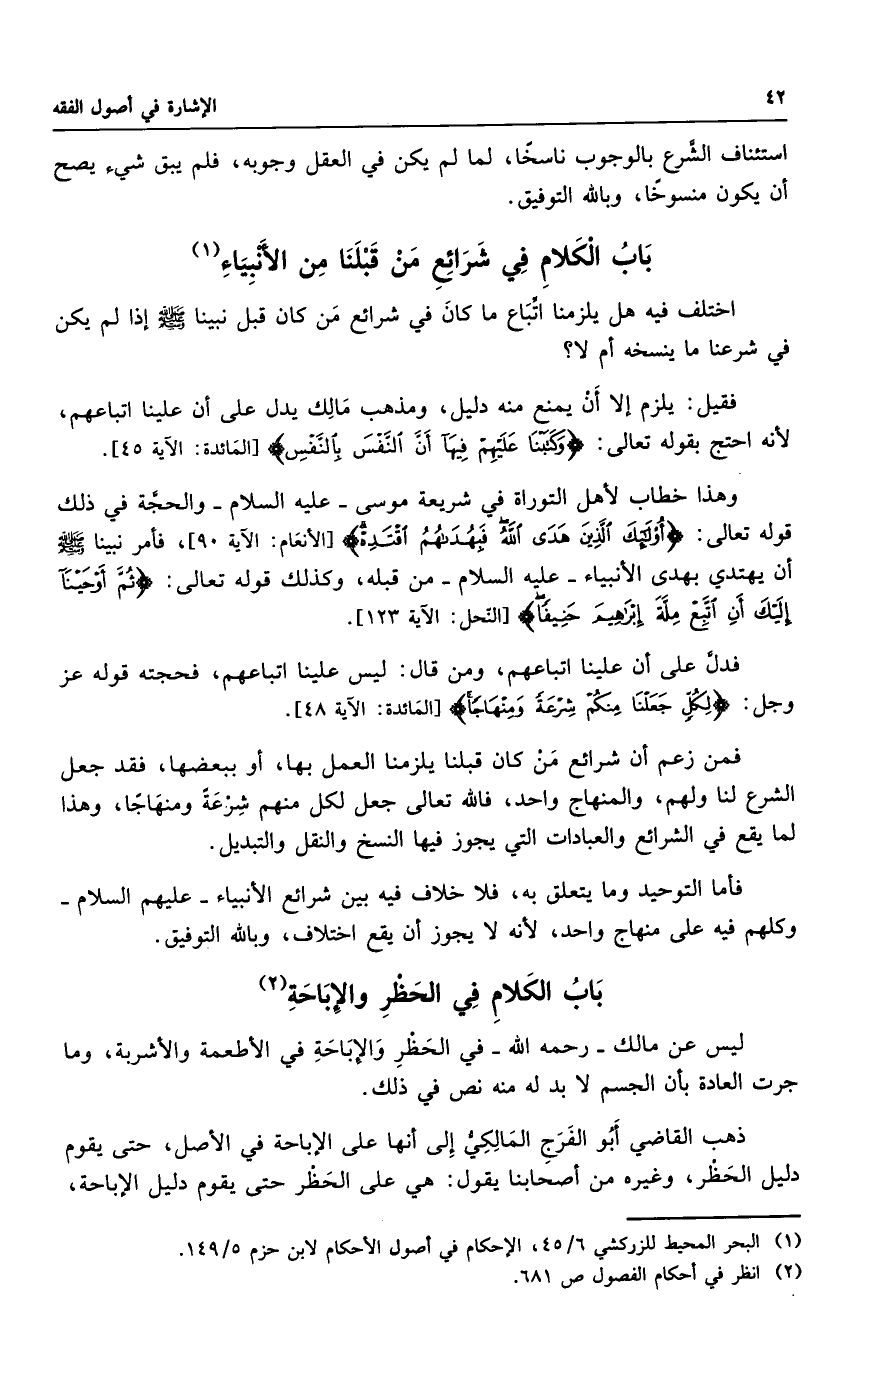 ٤٢
الإشارة في أصول الفقه
استئناف الشَّرع بالوجوب ناسخًا، لما لم يكن في العقل وجوبه، فلم يبق شيء يصح
أن يكون منسوخًا، وبالله التوفيق.
بَابُ الْكَلامِ فِي شَرَائِعِ مَنْ قَبْلَنَا مِن الأَنْبِيَاءِ(١)
اختلف فيه هل يلزمنا اتِّبَاع ما كانَ في شرائع مَن كان قبل نبينا ﷺ إذا لم يكن
في شرعنا ما ينسخه أم لا؟
فقيل: يلزم إلا أَنْ يمنع منه دليل، ومذهب مَالِك يدل على أن علينا اتباعهم،
لأنه احتج بقوله تعالى: ﴿وَكَتَبْنَا عَلَيْهِمْ فِيهَآ أَنَّ ٱلنَّفْسَ بِٱلنَّفْسِ﴾ [المَائدة: الآية ٤٥].
وهذا خطاب لأهل التوراة في شريعة موسى ـ عليه السلام ـ والحجَّة في ذلك
قوله تعالى: ﴿أُوْلَٰٓئِكَ ٱلَّذِينَ هَدَى ٱللَّهُۖ فَبِهُدَىٰهُمُ ٱقْتَدِهْۗ﴾ [الأنعَام: الآية ٩٠]، فأمر نبينا ﷺ
أن يهتدي بهدى الأنبياء ـ عليه السلام ـ من قبله، وكذلك قوله تعالى: ﴿ثُمَّ أَوْحَيْنَآ
إِلَيْكَ أَنِ ٱتَّبِعْ مِلَّةَ إِبْرَٰهِيمَ حَنِيفًاۖ﴾ [النّحل: الآية ١٢٣].
فدلَّ على أن علينا اتباعهم، ومن قال: ليس علينا اتباعهم، فحجته قوله عز
وجل: ﴿لِكُلٍّ جَعَلْنَا مِنكُمْ شِرْعَةً وَمِنْهَاجًاۚ﴾ [المَائدة: الآية ٤٨].
فمن زعم أن شرائع مَنْ كان قبلنا يلزمنا العمل بها، أو ببعضها، فقد جعل
الشرع لنا ولهم، والمنهاج واحد، فالله تعالى جعل لكل منهم شِرْعَةً ومنهَاجًا، وهذا
لما يقع في الشرائع والعبادات التي يجوز فيها النسخ والنقل والتبديل.
فأما التوحيد وما يتعلق به، فلا خلاف فيه بين شرائع الأنبياء ـ عليهم السلام ـ
وكلهم فيه على منهاج واحد، لأنه لا يجوز أن يقع اختلاف، وبالله التوفيق.
بَابُ الكَلامِ فِي الحَظْرِ والإِبَاحَةِ(٢)
ليس عن مالك ـ رحمه الله ـ في الحَظْرِ وَالإِبَاحَةِ في الأطعمة والأشربة، وما
جرت العادة بأن الجسم لا بد له منه نص في ذلك.
ذهب القاضي أَبُو الفَرَجِ المَالِكِيُّ إلى أنها على الإباحة في الأصل، حتى يقوم
دليل الحَظْر، وغيره من أصحابنا يقول: هي على الحَظْر حتى يقوم دليل الإباحة،
(١) البحر المحيط للزركشي ٤٥/٦، الإحكام في أصول الأحكام لابن حزم ١٤٩/٥.
(٢) انظر في أحكام الفصول ص ٦٨١.